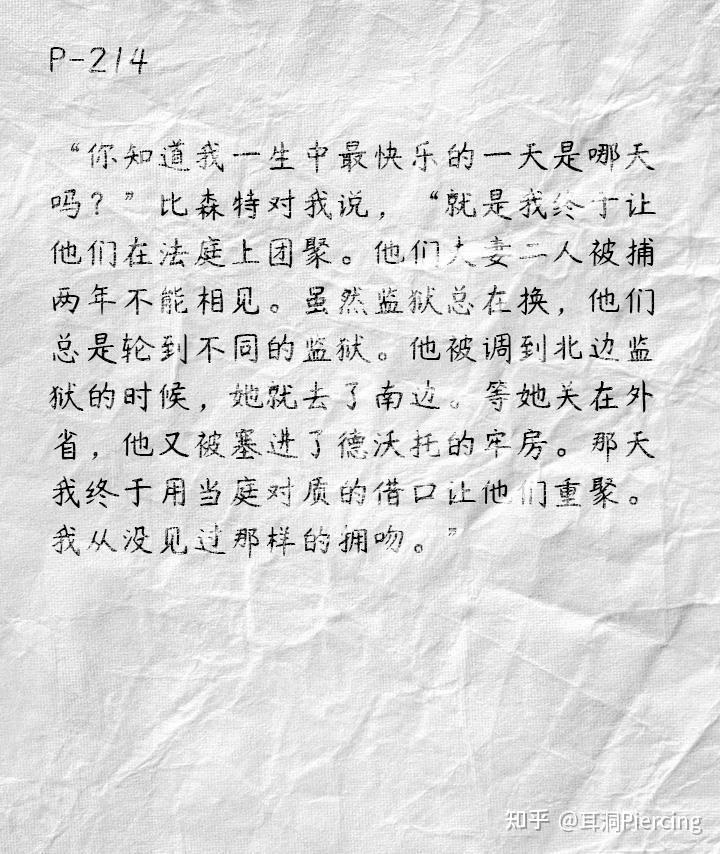 P-214
“你知道我一生中最快乐的一天是哪天
吗？”比森特对我说，“就是我终于让
他们在法庭上团聚。他们夫妻二人被捕
两年不能相见。虽然监狱总在换，他们
总是轮到不同的监狱。他被调到北边监
狱的时候，她就去了南边。等她关在外
省，他又被塞进了德沃托的牢房。那天
我终于用当庭对质的借口让他们重聚。
我从没见过那样的拥吻。”
知乎 @耳洞Piercing